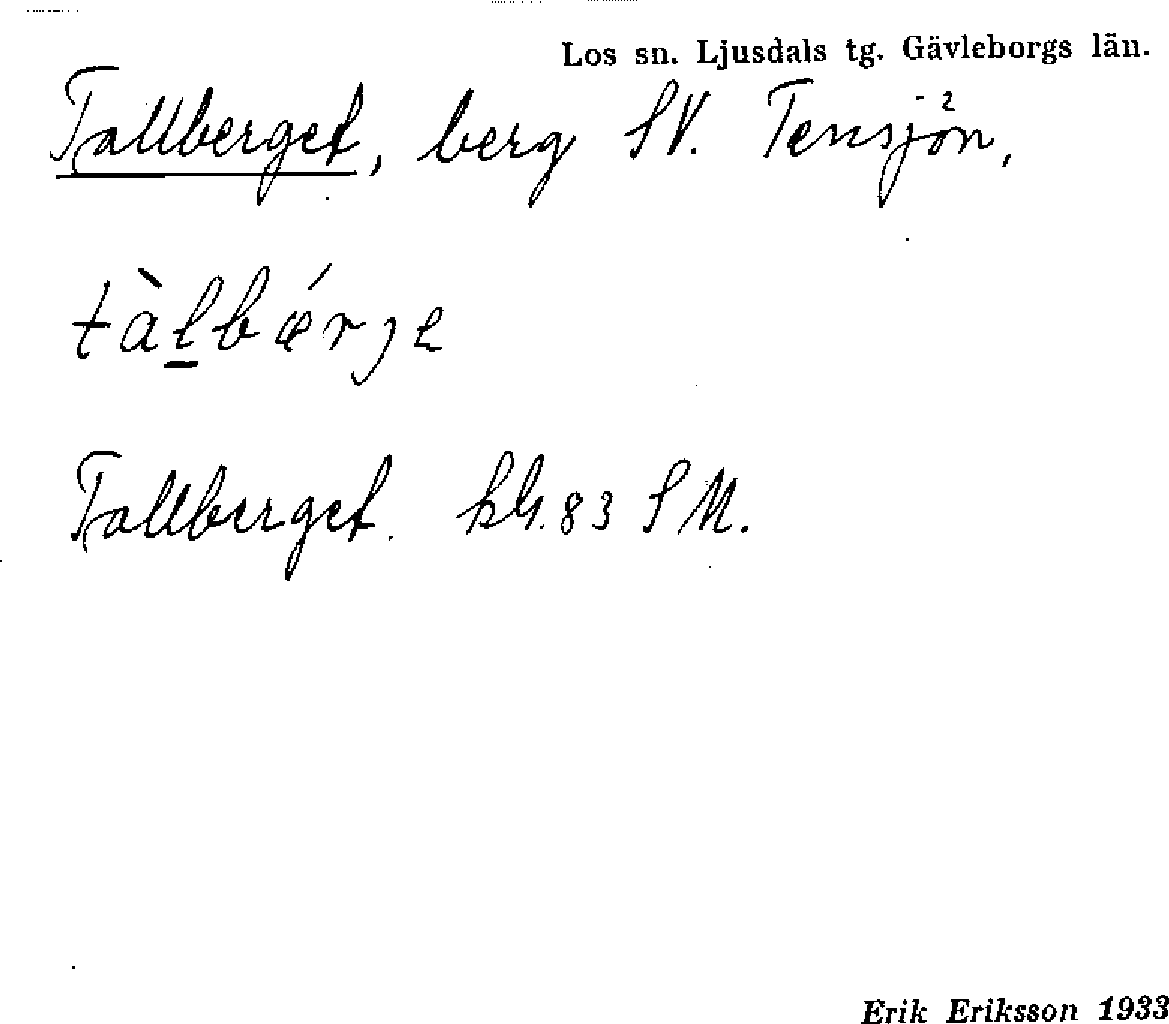 Los sn. Ljusdals tg. Gävleborgs län.
Tallberget, berg SV. Tensjön,
tàḻbǽrje
Tallberget. kbl. 83 SM.
Erik Eriksson 1933